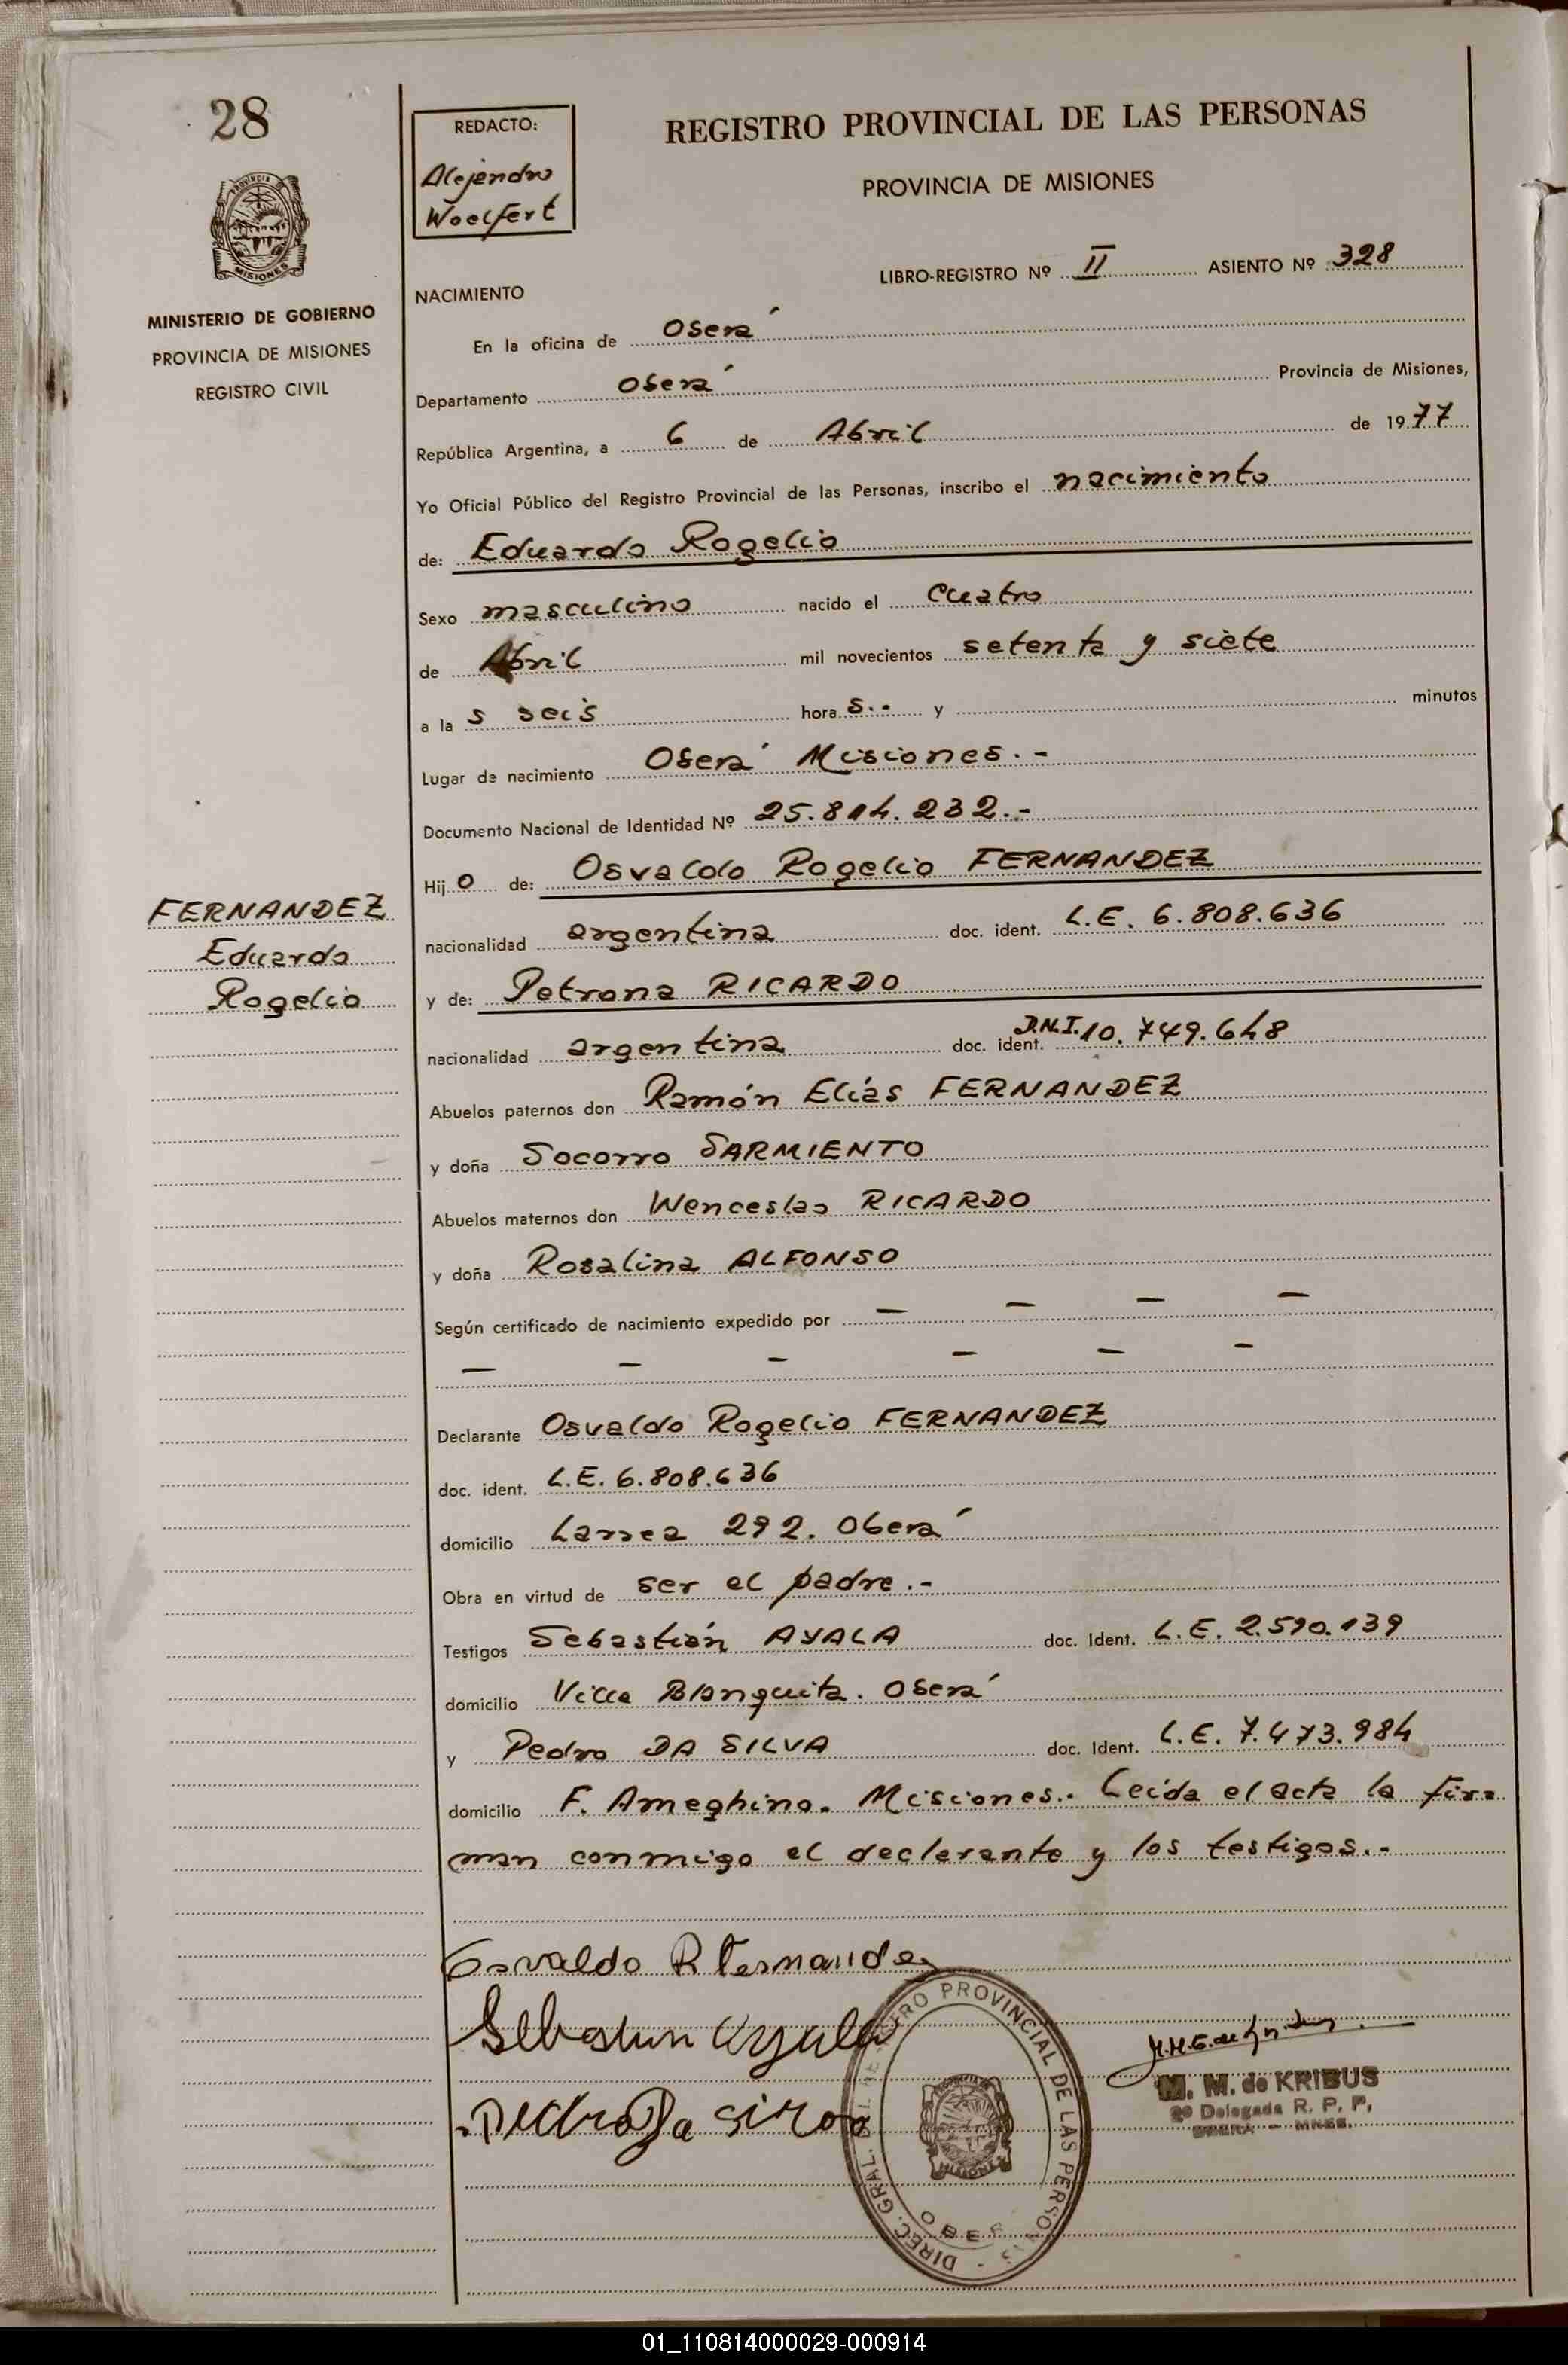 28
REDACTO:
Alejandro
Woelfert
REGISTRO PROVINCIAL DE LAS PERSONAS
PROVINCIA DE MISIONES
PROVINCIA DE
MISIONES
MINISTERIO DE GOBIERNO
PROVINCIA DE MISIONES
REGISTRO CIVIL
LIBRO-REGISTRO Nº II ASIENTO Nº 328
NACIMIENTO
En la oficina de Oberá
Departamento Oberá Provincia de Misiones,
República Argentina, a 6 de Abril de 1977
Yo Oficial Público del Registro Provincial de las Personas, inscribo el nacimiento
de: Eduardo Rogelio
Sexo masculino nacido el cuatro
de Abril mil novecientos setenta y siete
a la s seis hora s.- y minutos
Lugar de nacimiento Oberá Misiones.-
Documento Nacional de Identidad Nº 25.814.232.-
Hij o de: Osvaldo Rogelio FERNANDEZ
FERNANDEZ
Eduardo
Rogelio
nacionalidad argentina doc. ident. L.E. 6.808.636
y de: Petrona RICARDO
nacionalidad argentina doc. ident. D.N.I. 10.749.648
Abuelos paternos don Ramón Elías FERNANDEZ
y doña Socorro SARMIENTO
Abuelos maternos don Wenceslao RICARDO
y doña Rosalina ALFONSO
Según certificado de nacimiento expedido por — — — —
— — — — — —
Declarante Osvaldo Rogelio FERNANDEZ
doc. ident. L.E. 6.808.636
domicilio Larrea 292. Oberá
Obra en virtud de ser el padre.-
Testigos Sebastián AYALA doc. Ident. L.E. 2.590.139
domicilio Villa Blanquita. Oberá
y Pedro DA SILVA doc. Ident. L.E. 7.473.984
domicilio F. Ameghino. Misiones.- Leída el acta la fir=
man conmigo el declarante y los testigos.-
Osvaldo R Fernandez
Sebastian Ayala
Pedro Da Silva
DIREC. GRAL. DEL REGISTRO PROVINCIAL DE LAS PERSONAS
OBERA
M. M. de KRIBUS
2º Delegada R. P. P.
OBERA - MNES.
01_110814000029-000914